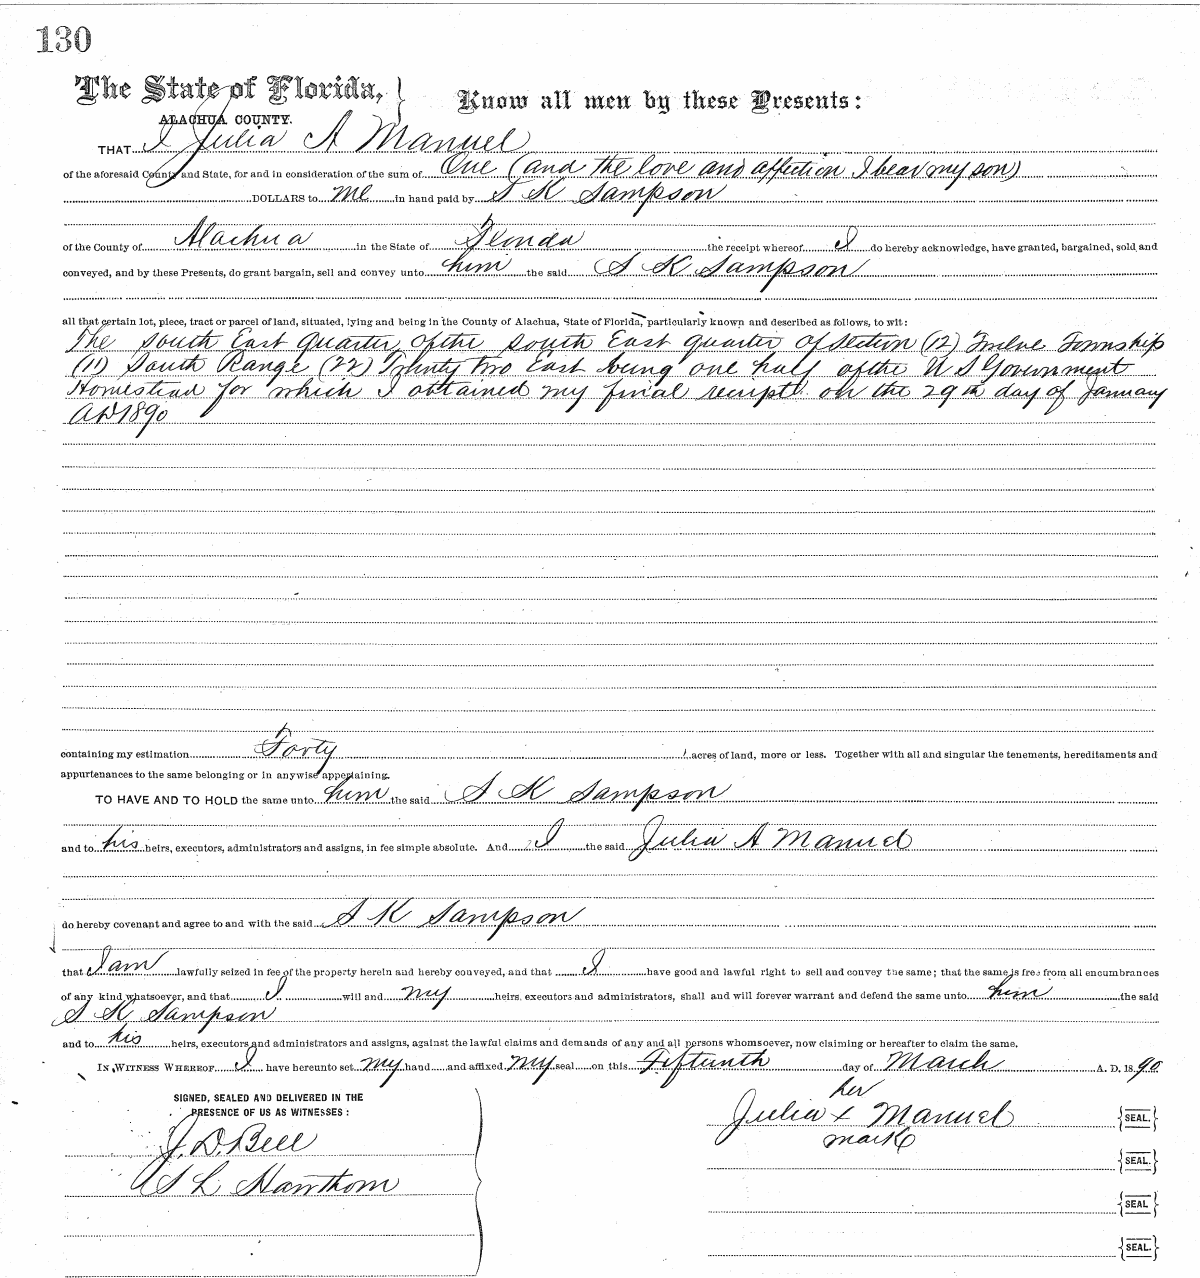 130
The State of Florida, } Know all men by these Presents:
ALACHUA COUNTY.
THAT I Julia A Manuel
of the aforesaid County and State, for and in consideration of the sum of One (and the love and affection I bear my son)
DOLLARS to me in hand paid by S K Sampson
of the County of Alachua in the State of Florida the receipt whereof I do hereby acknowledge, have granted, bargained, sold and
conveyed, and by these Presents, do grant bargain, sell and convey unto him the said S K Sampson
all that certain lot, piece, tract or parcel of land, situated, lying and being in the County of Alachua, State of Florida, particularly known and described as follows, to wit:
The South East Quarter of the South East quarter of Section (12) Twelve Township
(11) South Range (22) Twenty two East being one half of the U S Government
Homestead for which I obtained my final receipt on the 29th day of January
AD 1890
containing my estimation Forty acres of land, more or less. Together with all and singular the tenements, hereditaments and
appurtenances to the same belonging or in anywise appertaining.
TO HAVE AND TO HOLD the same unto him the said S K Sampson
and to his heirs, executors, administrators and assigns, in fee simple absolute. And I the said Julia A Manuel
do hereby covenant and agree to and with the said S K Sampson
that I am lawfully seized in fee of the property herein and hereby conveyed, and that I have good and lawful right to sell and convey the same; that the same is free from all encumbrances
of any kind whatsoever, and that I will and my heirs, executors and administrators, shall and will forever warrant and defend the same unto him the said
S K Sampson
and to his heirs, executors and administrators and assigns, against the lawful claims and demands of any and all persons whomsoever, now claiming or hereafter to claim the same.
IN WITNESS WHEREOF I have hereunto set my hand and affixed my seal on this Fifteenth day of March A. D. 1890
SIGNED, SEALED AND DELIVERED IN THE
PRESENCE OF US AS WITNESSES:
her
Julia x Manuel {SEAL.}
mark
J. D. Bell
{SEAL.}
S L Hawthorn
{SEAL}
{SEAL.}